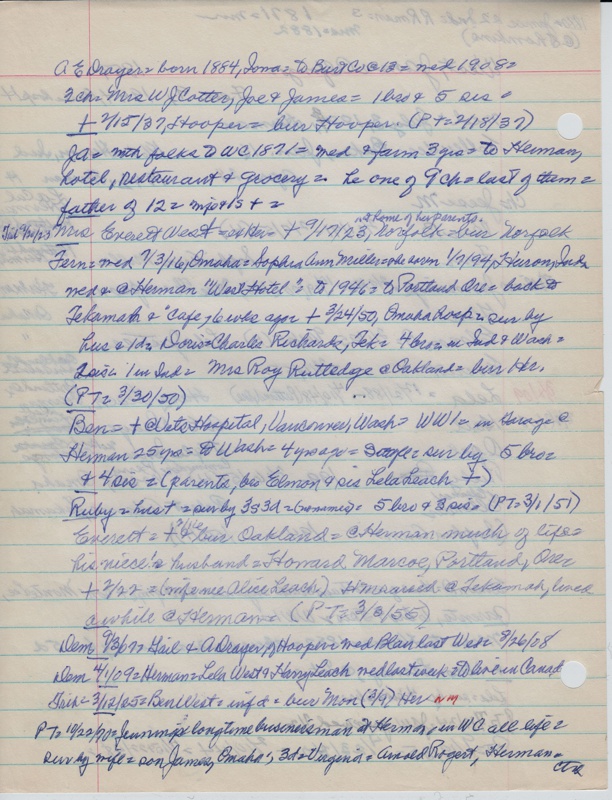 A E Drayer = born 1884, Iowa = to Burt Co @ 13 = med 1908 =
2ch = Mrs W J Cotter, Joe & James = 1 bro & 5 sis =
+ 2/15/37, Hooper = bur Hooper (PT = 2/18/37)
Jd = with folks to WC 1871 = med & farm 3 yrs = to Herman,
hotel, restaurant & grocery = he one of 9 ch = last of them =
father of 12 =
at home of her parents.
Mrs Everett West = + 9/17/23, Norfolk = bur Norfolk
Fern = med 7/3/16, Omaha = Sophia Ann Miller = she born 1/7/94, Huron, Ind
med & @ Herman "West Hotel" = to 1946 = to Portland Ore = back to
Tekamah & "Cafe, 6 wks ago = + 3/24/50, Omaha Hosp = sur by
hus & 1d = Doris = Charles Richards, Tek = 4 bros in Ind & Wash =
2 sis = 1 in Ind = Mrs Roy Rutledge @ Oakland = bur Her.
(PT = 3/30/50)
Ben = + @ Vets Hospital, Vancouver, Wash = WW1 = in Garage @
Herman 25 yrs = to Wash = 4 yrs ago = sur by 5 bros
& 4 sis = (parents, bro Elmon & sis Lela Leach +)
Ruby = = sur by 3s 3d = 5 bro & 3 sis = (PT = 3/1/51)
Everett = + bur Oakland = @ Herman much of life =
his niece's husband = Howard Marcoe, Portland, Ore
+ 2/22 = (wife nee Alice Leach) married @ Tekamah, lived
awhile @ Herman = (PT = 3/3/55)
Dem Gail & A Drayer, of Hooper = med Blair last Wes = 3/26/08
Dem 4/1/09 = Herman = Lela West & Harry Leach med last week = to live in Canada
Trib = 3/12/25 = Ben West = inf d = bur Mon (3/9) Her NM
PT = 10/22/70 = Jennings longtime businessman at Herman, in WC all life =
sur by wife = son James, Omaha; 3d = Virginia = Arnold Rogert, Herman =